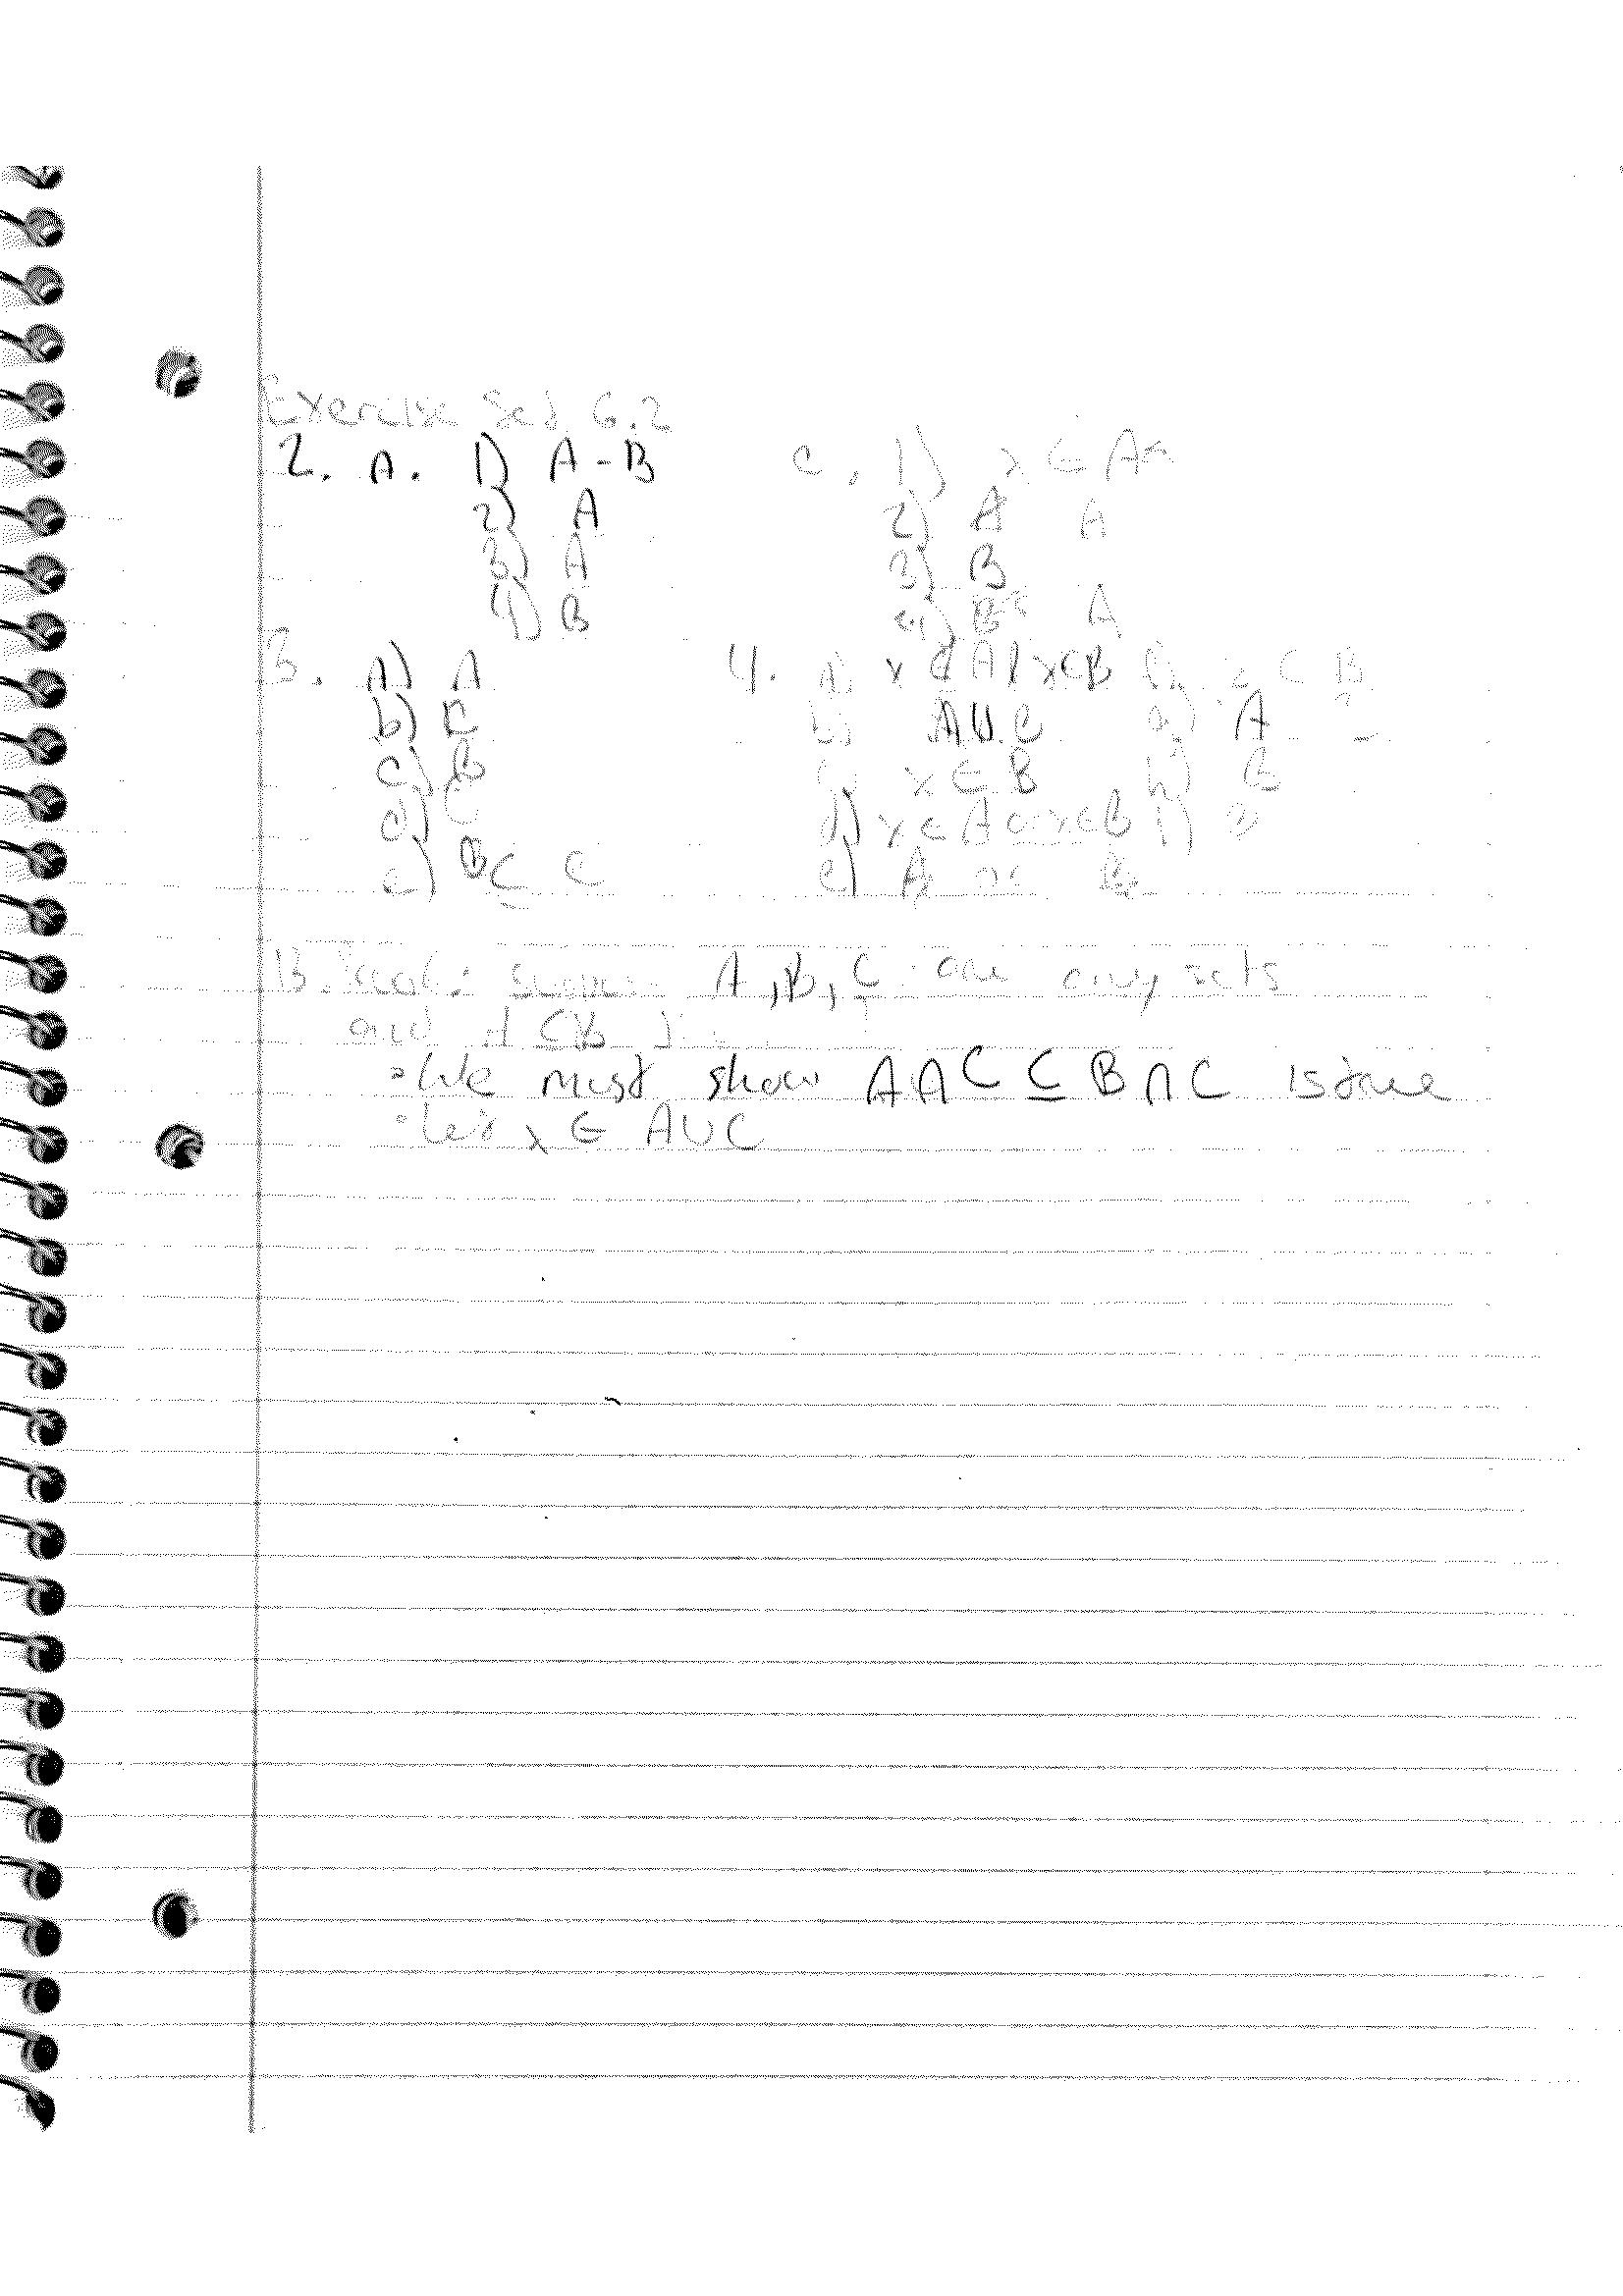 Exercise Set 6.2
2. A. 1) A - B
2) A
3) A
4) B
C. 1) x ∈ A
2) A A
3) B
4) B A
3. A) A
b) C
c) B
d) C
e) B ⊆ C
4. A) x ∈ A x ∈ B
b) A ∪ C
c) x ∈ B
d) x ∈ A or x ∈ B
e) A or B
B
g) A
h) B
i)
13. Proof: suppose A, B, C are any sets
and A ⊆ B
• We must show A ∩ C ⊆ B ∩ C is true
• Let x ∈ A ∪ C